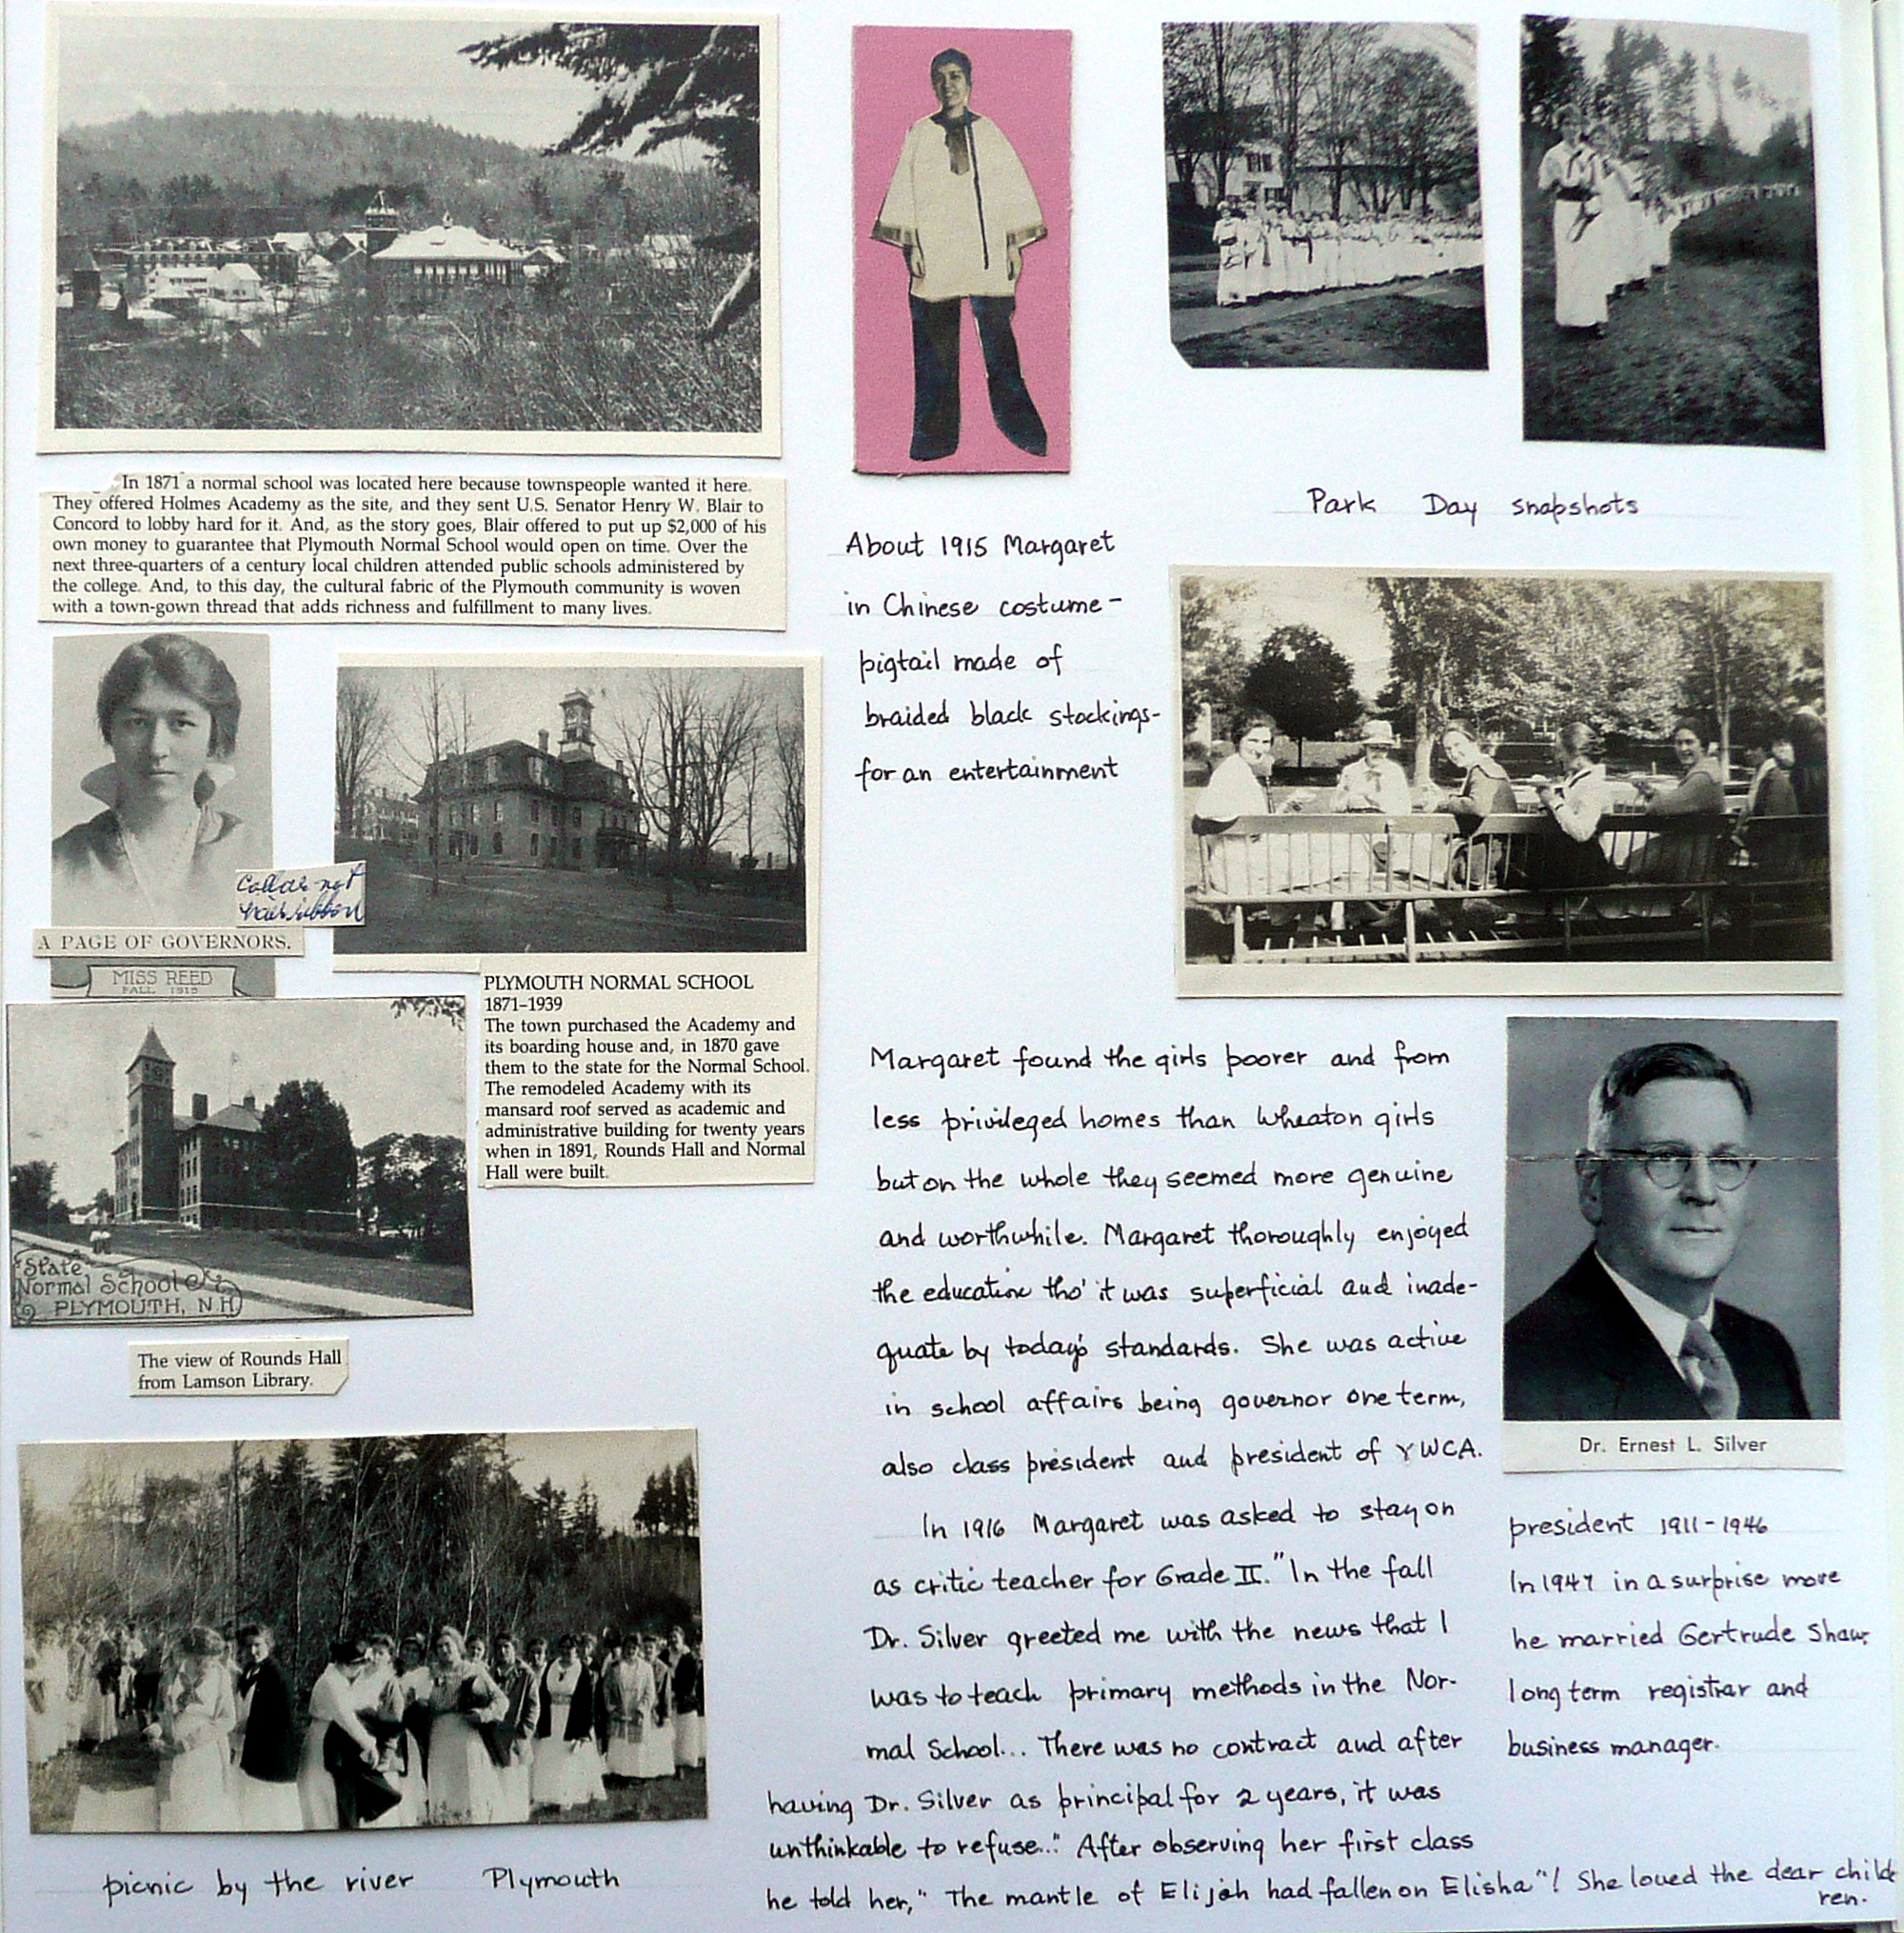 In 1871 a normal school was located here because townspeople wanted it here.
They offered Holmes Academy as the site, and they sent U.S. Senator Henry W. Blair to
Concord to lobby hard for it. And, as the story goes, Blair offered to put up $2,000 of his
own money to guarantee that Plymouth Normal School would open on time. Over the
next three-quarters of a century local children attended public schools administered by
the college. And, to this day, the cultural fabric of the Plymouth community is woven
with a town-gown thread that adds richness and fulfillment to many lives.
Collar not
hair ribbon
A PAGE OF GOVERNORS.
MISS REED
FALL 1915
PLYMOUTH NORMAL SCHOOL
1871–1939
The town purchased the Academy and
its boarding house and, in 1870 gave
them to the state for the Normal School.
The remodeled Academy with its
mansard roof served as academic and
administrative building for twenty years
when in 1891, Rounds Hall and Normal
Hall were built.
State
Normal School
PLYMOUTH, N.H.
The view of Rounds Hall
from Lamson Library.
picnic by the river Plymouth
About 1915 Margaret
in Chinese costume –
pigtail made of
braided black stockings –
for an entertainment
Park Day snapshots
Margaret found the girls poorer and from
less privileged homes than Wheaton girls
but on the whole they seemed more genuine
and worthwhile. Margaret thoroughly enjoyed
the education tho' it was superficial and inade-
quate by today's standards. She was active
in school affairs being governor one term,
also class president and president of YWCA.
In 1916 Margaret was asked to stay on
as critic teacher for Grade II. "In the fall
Dr. Silver greeted me with the news that I
was to teach primary methods in the Nor-
mal School... There was no contract and after
having Dr. Silver as principal for 2 years, it was
unthinkable to refuse..." After observing her first class
he told her, "The mantle of Elijah had fallen on Elisha"! She loved the dear child
ren.
Dr. Ernest L. Silver
president 1911-1946
In 1947 in a surprise move
he married Gertrude Shaw,
long term registrar and
business manager.